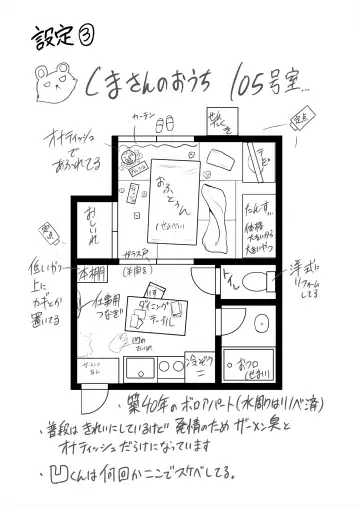 設定③
くまさんのおうち 105号室…
カーテン
せんたくき
定点
オナティッシュ
で
あふれてる
テレビ
おふとぅん
(せまい)
たんす…
価格
大きいから
大きいやつ
おしいれ
定点
ガラス戸
(半開き)
本棚
低いから
上に
カギとか
置いてる
仕事用
つなぎ
ダイニング
テーブル
トイレ
洋式に
リフォーム
してる
冷ぞうこ
おフロ
(せまい)
・築40年のボロアパート(水周りはリノベ済)
・普段はきれいにしているけど発情のためザーメン臭と
オナティッシュだらけになっています
・凹くんは何回かここでスケベしてる。